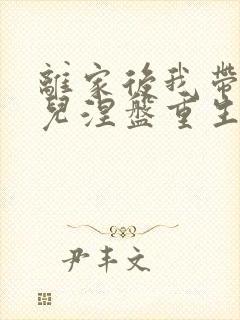 離家後我帶
兒涅盤重生
尹丰文